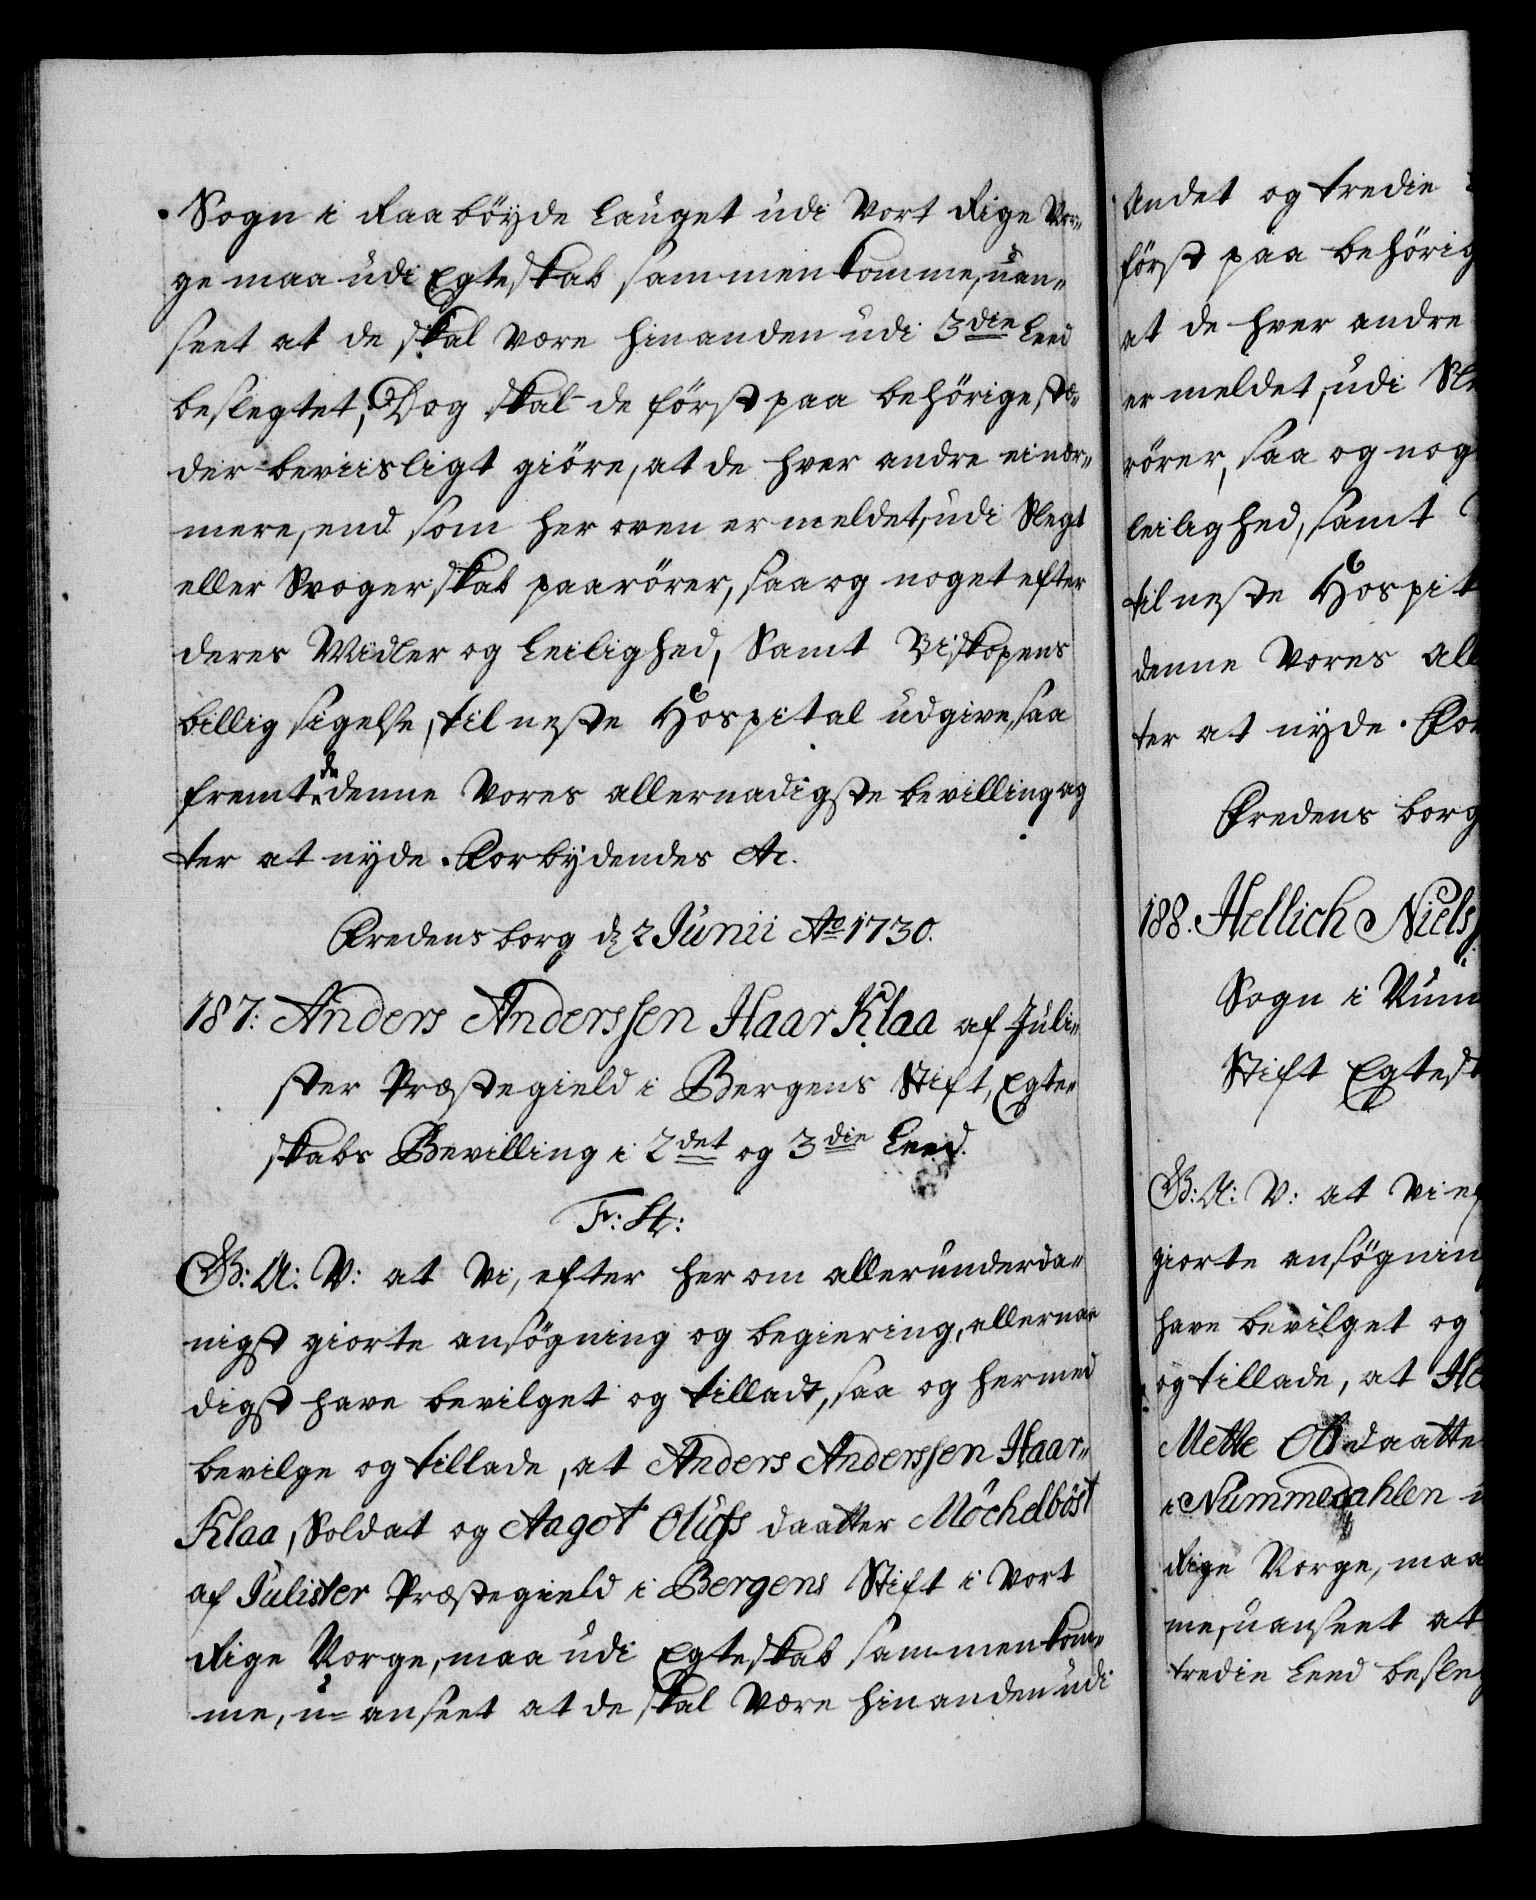 Sogn i Raaböyde Lauget udi Vort Rige Nor-
ge maa udi Egteskab sammenkomme, uan-
seet at de skal være hinanden udi 3die Leed
beslegtet, Dog skal de först paa behörige stæ-
der beviisligt giöre, at de hver andre ei nær-
mere, end som her oven er meldet, udi Slegt
eller Svogerskab paarörer, saa og noget efter
deres Midler og Leilighed, Samt Biskopens
billig sigelse, til neste Hospital udgive, saa
fremt de denne Vores allernadigste bevilling ag
ter at nyde. Forbydendes etc.
Fredensborg d 2 Junii Ao 1730.
187: Anders Anderssen HaarKlaa af Juli-
ster Præstegield i Bergens Stift, Egte-
skabs Bevilling i 2det og 3die Leed.
Fr: St:
G: A: V: at Vi, efter her om allerunderda-
nigst giorte ansögning og begiering, allerna-
digst have bevilget og tilladt, saa og hermed
bevilge og tillade, at Anders Anderssen Haar-
Klaa, Soldat og Aagot Olufs daatter Möchelböst
af Julister Præstegield i Bergens Stift i Vort
Rige Norge, maa udi Egteskab sammenkom-
me, u-anseet at de skal være hinanden udi
Andet og tredie
först paa behörig
at de hver andre
er meldet, udi Sle
rörer, saa og nog
leilighed, samt
til neste Hospit
denne Vores all
ter at nyde. For
Fredensborg
188. Hellich Niels
Sogn i Num
Stift Egtesk
G: A: V: at Vi ef
giorte ansögning
have bevilget og
og tillade, at He
Mette Ols daatte
i Nummedahlen u
Rige Norge, maa
me, uanseet at
tredie Leed besleg